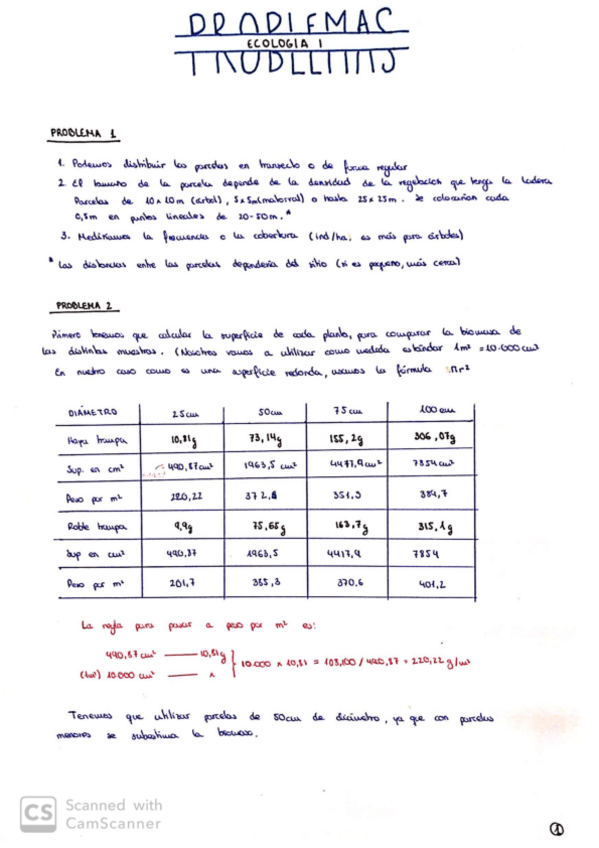 PROBLEMAS
ECOLOGIA I
PROBLEMA 1
1. Podemos distribuir las parcelas en transecto o de forma regular
2. El tamaño de la parcela depende de la densidad de la vegetacion que tenga la ladera
Parcelas de 10x10m (árbol), 5x5m(matorral) o hasta 25x25m. Se colocarian cada
0,5m en puntos lineales de 20-50m.*
3. Mediriamos la frecuencia o la cobertura (ind/ha; es más para árboles)
* Las distancias entre las parcelas dependeria del sitio (si es pequeño, más cerca)
PROBLEMA 2
Primero tenemos que calcular la superficie de cada planta, para comparar la biomasa de
las distintas muestras. (Nosotros vamos a utilizar como medida estándar 1m² = 10.000cm²
En nuestro caso como es una superficie redonda, usamos la fórmula πr²
DIÁMETRO 25cm 50cm 75cm 100cm
Haya trampa 10,81g 73,14g 155,2g 306,07g
Sup. en cm² 490,87cm² 1963,5 cm² 4417,9cm² 7854cm²
Peso por m² 220,22 372,5 351,3 384,7
Roble trampa 9,9g 75,65g 163,7g 315,1g
Sup en cm² 490,87 1963,5 4417,9 7854
Peso por m² 201,7 385,3 370,6 401,2
La regla para pasar a peso por m² es:
490,87 cm² — 10,81g
(1m²) 10.000 cm² — x
10.000 x 10,81 = 108,100 / 490,87 = 220,22 g/m²
Tenemos que utilizar parcelas de 50cm de diámetro, ya que con parcelas
menores se subestima la biomasa.
CS Scanned with
CamScanner
1